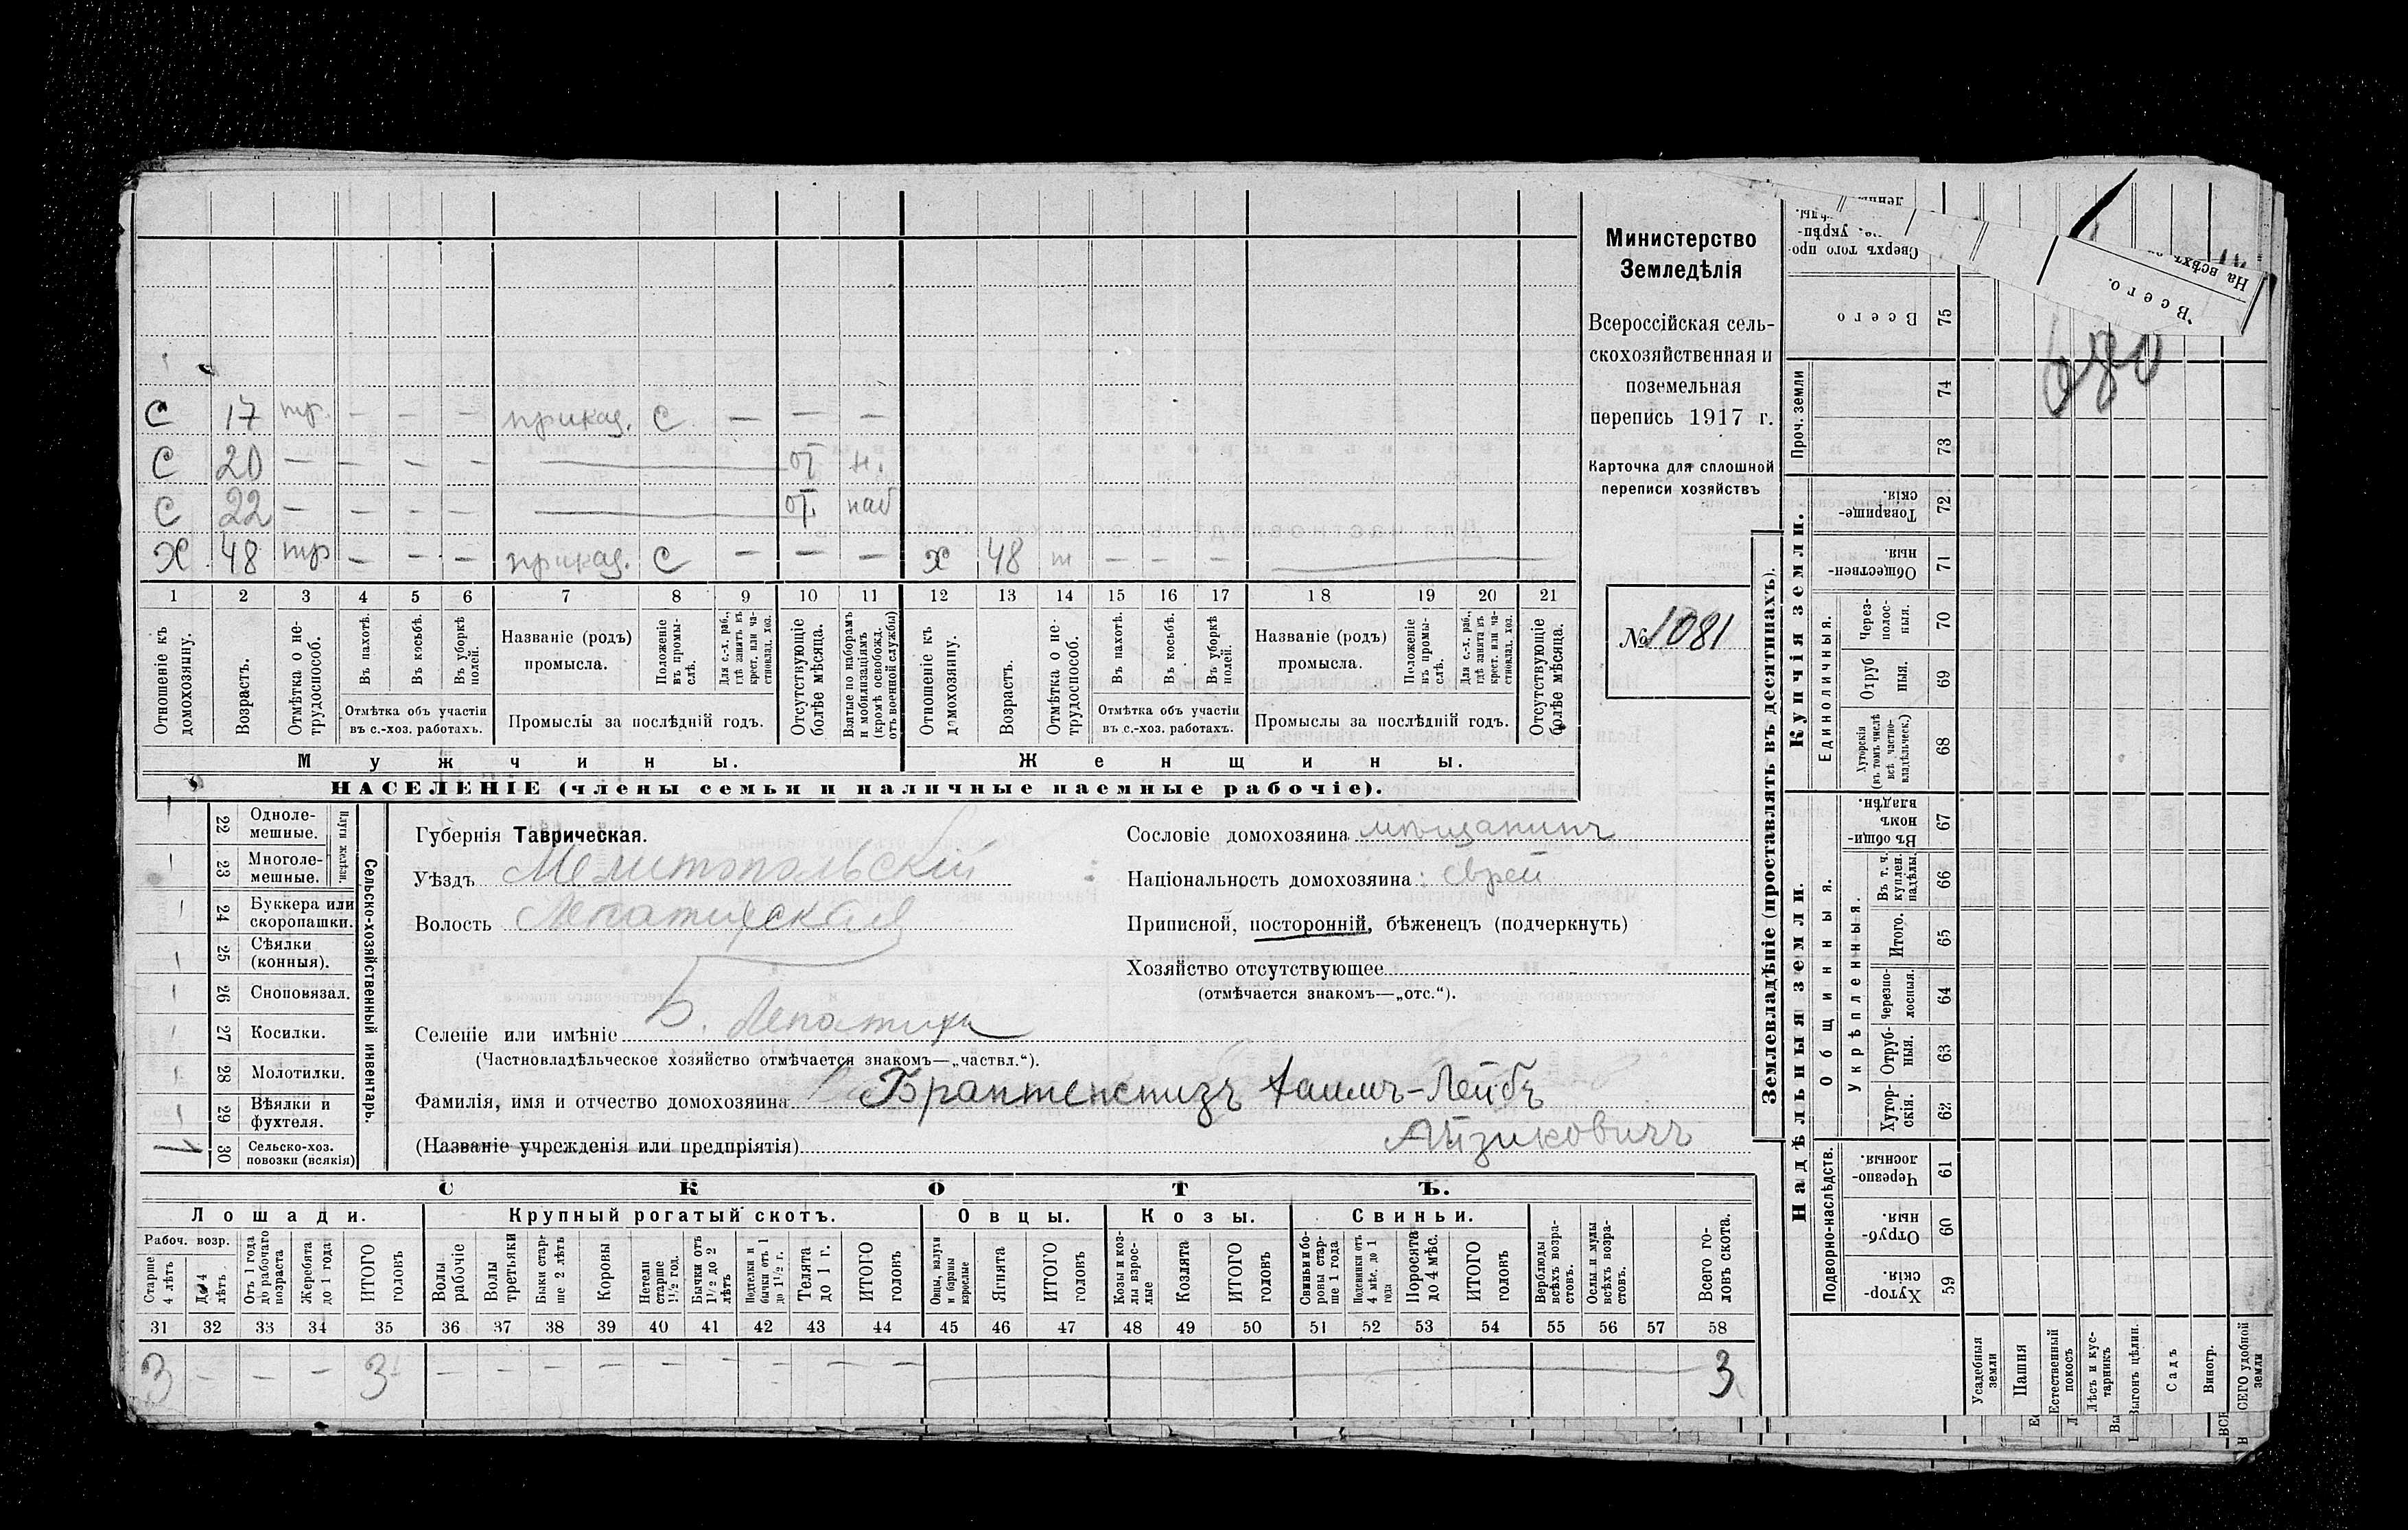 С 17 тр. — — — прикащ. С — — —
С 20 — — — — — от н.
С 22 — — — — — от. наб
Х 48 тр — — — прикащ. С — — — х 48 т — — — —
1 2 3 4 5 6 7 8 9 10 11 12 13 14 15 16 17 18 19 20 21
Отношеніе къ домохозяину.
Возрастъ.
Отмѣтка о нетрудоспособ.
Въ пахотѣ.
Въ косьбѣ.
Въ уборкѣ полей.
Отмѣтка объ участіи
въ с.-хоз. работахъ.
Названіе (родъ)
промысла.
Положеніе въ промыслѣ.
Для с.-х. раб., гдѣ занятъ въ крест. или частновлад. хоз.
Промыслы за послѣдній годъ.
Отсутствующіе болѣе мѣсяца.
Взятые по наборамъ и мобилизаціямъ (кромѣ освобожд. отъ военной службы)
Отношеніе къ домохозяину.
Возрастъ.
Отмѣтка о нетрудоспособ.
Въ пахотѣ.
Въ косьбѣ.
Въ уборкѣ полей.
Отмѣтка объ участіи
въ с.-хоз. работахъ.
Названіе (родъ)
промысла.
Положеніе въ промыслѣ.
Для с.-х. раб., гдѣ занята въ крест. или частновлад. хоз.
Промыслы за послѣдній годъ.
Отсутствующіе болѣе мѣсяца.
Мужчины. Женщины.
НАСЕЛЕНІЕ (члены семьи и наличные наемные рабочіе).
Министерство
Земледѣлія
Всероссійская сель-
скохозяйственная и
поземельная
перепись 1917 г.
Карточка для сплошной
переписи хозяйствъ
№ 1081
Сельско-хозяйственный инвентарь.
Плуги желѣзн.
22 Одноле-
мешные.
23 Многоле-
мешные.
24 Буккера или
скоропашки.
25 Сѣялки
(конныя).
26 Сноповязал.
27 Косилки.
28 Молотилки.
29 Вѣялки и
фухтеля.
30 Сельско-хоз.
повозки (всякія)
Губернія Таврическая.
Уѣздъ Мелитопольскій
Волость Лепатихская
Селеніе или имѣніе Б. Лепатиха
(Частновладѣльческое хозяйство отмѣчается знакомъ—„частвл.“).
Фамилія, имя и отчество домохозяина
(Названіе учрежденія или предпріятія) Айзиковичъ
Сословіе домохозяина мѣщанинъ
Національность домохозяина: еврей
Приписной, посторонній, бѣженецъ (подчеркнуть)
Хозяйство отсутствующее
(отмѣчается знакомъ—„отс.“).
СКОТЪ.
Лошади. Крупный рогатый скотъ. Овцы. Козы. Свиньи.
Рабоч. возр.
Старше 4 лѣтъ
До 4 лѣтъ
Отъ 1 года до рабочаго возраста
Жеребята до 1 года
ИТОГО головъ
Волы рабочіе
Волы третьяки
Быки старше 2 лѣтъ
Коровы
Нетели старше 1½ год.
Бычки отъ 1½ до 2 лѣтъ
Подтелки и бычки отъ 1 до 1½ г.
Телята до 1 г.
ИТОГО головъ
Овцы, валухи и бараны взрослые
Ягнята
ИТОГО головъ
Козы и козлы взрослые
Козлята
ИТОГО головъ
Свиньи и боровы старше 1 года
Подсвинки отъ 4 мѣс. до 1 года
Поросята до 4 мѣс.
ИТОГО головъ
Верблюды всѣхъ возрастовъ.
Ослы и мулы всѣхъ возрастовъ.
Всего головъ скота.
31 32 33 34 35 36 37 38 39 40 41 42 43 44 45 46 47 48 49 50 51 52 53 54 55 56 57 58
3 — — — 3 — — — — — — — — — 3
Землевладѣніе (проставлять въ десятинахъ).
Купчія земли.
Надѣльныя земли.
Проч. земли
Единоличныя.
Общинныя.
Укрѣпленныя.
Подворно-наслѣдств.
Сверхъ того про-
Всего 75
74
73
Товарище-
скія. 72
Обществен-
ныя. 71
Через-
полос-
ныя. 70
Отруб
ныя. 69
Хуторскія
(въ томъ числѣ
всѣ частно-
владѣльческ.) 68
Въ общи-
номъ
владѣн. 67
Въ т. ч.
куплен.
надѣлы. 66
Итого. 65
Черезпо-
лосныя. 64
Отруб-
ныя. 63
Хутор-
скія. 62
Черезпо-
лосныя. 61
Отруб-
ныя. 60
Хутор-
скія. 59
Усадебныя
земли
Пашня
Естественный
покосъ
Лѣсъ и кус-
тарникъ
Выгонъ цѣлин.
Садъ
Виногр.
Всего.
На всѣхъ
680